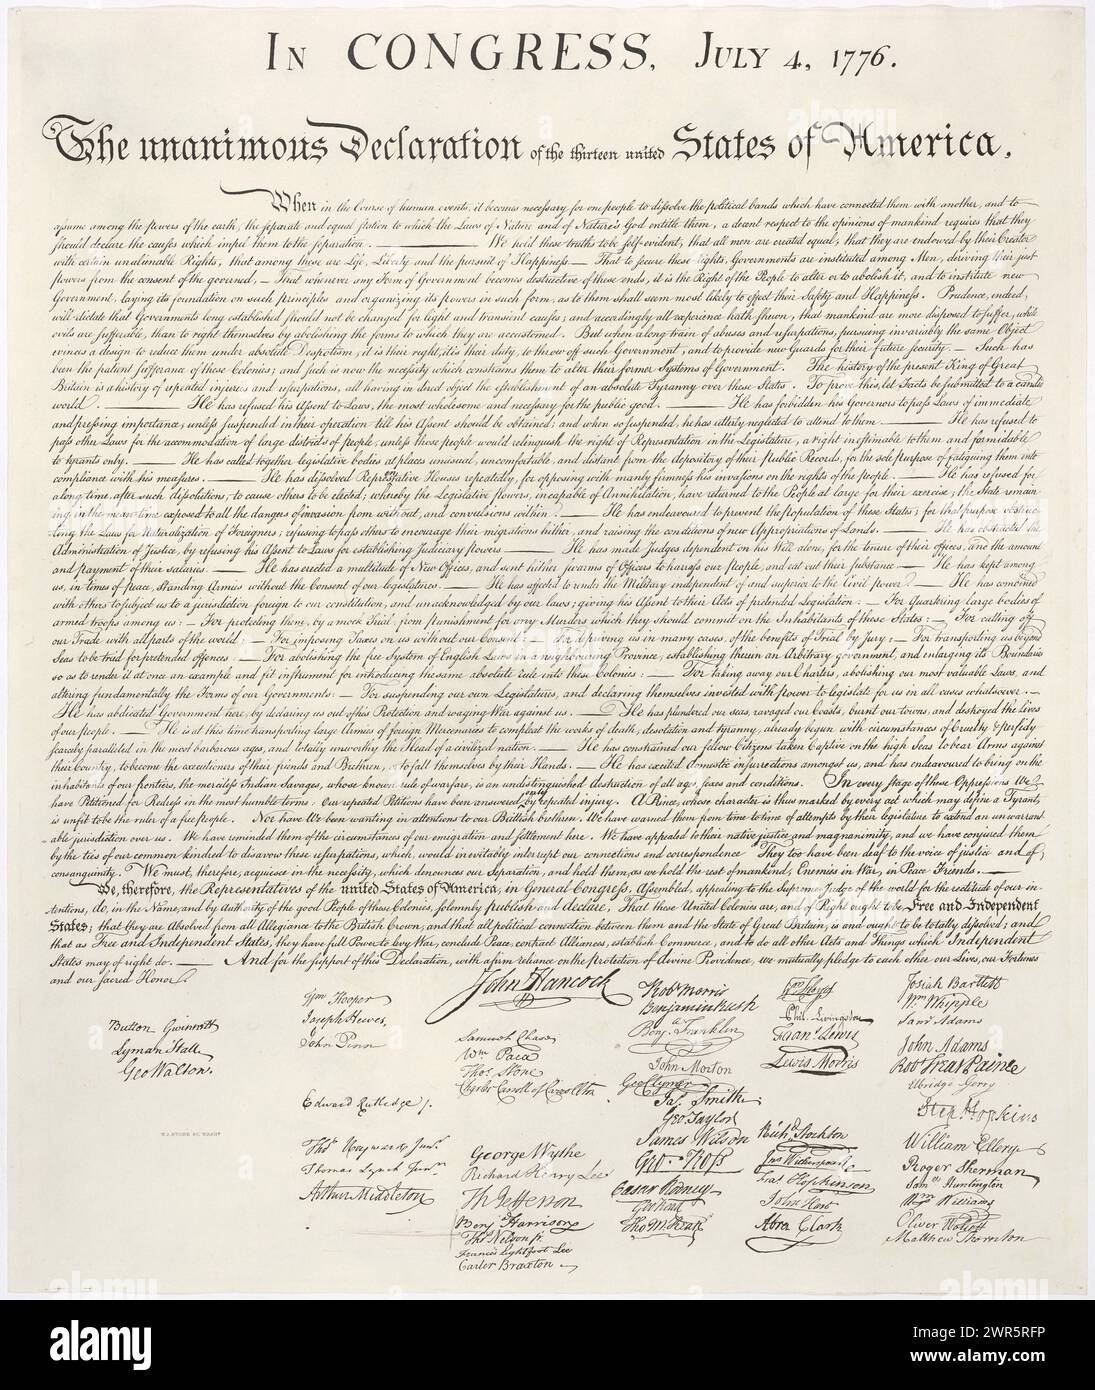 IN CONGRESS, JULY 4, 1776.
The unanimous Declaration of the thirteen united States of America,
When in the Course of human events, it becomes necessary for one people to dissolve the political bands which have connected them with another, and to
assume among the powers of the earth, the separate and equal station to which the Laws of Nature and of Nature's God entitle them, a decent respect to the opinions of mankind requires that they
should declare the causes which impel them to the separation. ——— We hold these truths to be self-evident, that all men are created equal, that they are endowed by their Creator
with certain unalienable Rights, that among these are Life, Liberty and the pursuit of Happiness — That to secure these rights, Governments are instituted among Men, deriving their just
powers from the consent of the governed, — That whenever any Form of Government becomes destructive of these ends, it is the Right of the People to alter or to abolish it, and to institute new
Government, laying its foundation on such principles and organizing its powers in such form, as to them shall seem most likely to effect their Safety and Happiness. Prudence, indeed,
will dictate that Governments long established should not be changed for light and transient causes; and accordingly all experience hath shewn, that mankind are more disposed to suffer, while
evils are sufferable, than to right themselves by abolishing the forms to which they are accustomed. But when a long train of abuses and usurpations, pursuing invariably the same Object
evinces a design to reduce them under absolute Despotism, it is their right, it is their duty, to throw off such Government, and to provide new Guards for their future security. — Such has
been the patient sufferance of these Colonies; and such is now the necessity which constrains them to alter their former Systems of Government. The history of the present King of Great
Britain is a history of repeated injuries and usurpations, all having in direct object the establishment of an absolute Tyranny over these States. To prove this, let Facts be submitted to a candid
world. ——— He has refused his Assent to Laws, the most wholesome and necessary for the public good. ——— He has forbidden his Governors to pass Laws of immediate
and pressing importance, unless suspended in their operation till his Assent should be obtained; and when so suspended, he has utterly neglected to attend to them. ——— He has refused to
pass other Laws for the accommodation of large districts of people, unless those people would relinquish the right of Representation in the Legislature, a right inestimable to them and formidable
to tyrants only. ——— He has called together legislative bodies at places unusual, uncomfortable, and distant from the depository of their Public Records, for the sole purpose of fatiguing them into
compliance with his measures. ——— He has dissolved Representative Houses repeatedly, for opposing with manly firmness his invasions on the rights of the people. ——— He has refused for
a long time, after such dissolutions, to cause others to be elected; whereby the Legislative powers, incapable of Annihilation, have returned to the People at large for their exercise; the State remain
ing in the mean time exposed to all the dangers of invasion from without, and convulsions within. ——— He has endeavoured to prevent the population of these States; for that purpose obstruc-
ting the Laws for Naturalization of Foreigners; refusing to pass others to encourage their migrations hither, and raising the conditions of new Appropriations of Lands. ——— He has obstructed the
Administration of Justice, by refusing his Assent to Laws for establishing Judiciary powers ——— He has made Judges dependent on his Will alone, for the tenure of their offices, and the amount
and payment of their salaries. ——— He has erected a multitude of New Offices, and sent hither swarms of Officers to harrass our people, and eat out their substance. ——— He has kept among
us, in times of peace, Standing Armies without the Consent of our legislatures. ——— He has affected to render the Military independent of and superior to the Civil power. ——— He has combined
with others to subject us to a jurisdiction foreign to our constitution, and unacknowledged by our laws; giving his Assent to their Acts of pretended Legislation: — For Quartering large bodies of
armed troops among us: — For protecting them, by a mock Trial, from punishment for any Murders which they should commit on the Inhabitants of these States: — For cutting off
our Trade with all parts of the world: — For imposing Taxes on us without our Consent: — For depriving us in many cases, of the benefits of Trial by Jury: — For transporting us beyond
Seas to be tried for pretended offences — For abolishing the free System of English Laws in a neighbouring Province, establishing therein an Arbitrary government, and enlarging its Boundaries
so as to render it at once an example and fit instrument for introducing the same absolute rule into these Colonies: — For taking away our Charters, abolishing our most valuable Laws, and
altering fundamentally the Forms of our Governments: — For suspending our own Legislatures, and declaring themselves invested with power to legislate for us in all cases whatsoever. —
He has abdicated Government here, by declaring us out of his Protection and waging War against us. — He has plundered our seas, ravaged our Coasts, burnt our towns, and destroyed the lives
of our people. — He is at this time transporting large Armies of foreign Mercenaries to compleat the works of death, desolation and tyranny, already begun with circumstances of Cruelty & perfidy
scarcely paralleled in the most barbarous ages, and totally unworthy the Head of a civilized nation. — He has constrained our fellow Citizens taken Captive on the high Seas to bear Arms against
their Country, to become the executioners of their friends and Brethren, or to fall themselves by their Hands. — He has excited domestic insurrections amongst us, and has endeavoured to bring on the
inhabitants of our frontiers, the merciless Indian Savages, whose known rule of warfare, is an undistinguished destruction of all ages, sexes and conditions. In every stage of these Oppressions We
have Petitioned for Redress in the most humble terms: Our repeated Petitions have been answered only by repeated injury. A Prince, whose character is thus marked by every act which may define a Tyrant,
is unfit to be the ruler of a free people. Nor have We been wanting in attentions to our Brittish brethren. We have warned them from time to time of attempts by their legislature to extend an unwarrant-
able jurisdiction over us. We have reminded them of the circumstances of our emigration and settlement here. We have appealed to their native justice and magnanimity, and we have conjured them
by the ties of our common kindred to disavow these usurpations, which, would inevitably interrupt our connections and correspondence They too have been deaf to the voice of justice and of
consanguinity. We must, therefore, acquiesce in the necessity, which denounces our Separation, and hold them, as we hold the rest of mankind, Enemies in War, in Peace Friends. —
We, therefore, the Representatives of the united States of America, in General Congress, Assembled, appealing to the Supreme Judge of the world for the rectitude of our in-
tentions, do, in the Name, and by Authority of the good People of these Colonies, solemnly publish and declare, That these United Colonies are, and of Right ought to be Free and Independent
States; that they are Absolved from all Allegiance to the British Crown, and that all political connection between them and the State of Great Britain, is and ought to be totally dissolved; and
that as Free and Independent States, they have full Power to levy War, conclude Peace, contract Alliances, establish Commerce, and to do all other Acts and Things which Independent
States may of right do. ——— And for the support of this Declaration, with a firm reliance on the Protection of divine Providence, we mutually pledge to each other our Lives, our Fortunes
and our sacred Honor.
Button Gwinnett
Lyman Hall
Geo Walton.
Wm Hooper
Joseph Hewes,
John Penn
Edward Rutledge /.
Thos Heyward Junr.
Thomas Lynch Junr.
Arthur Middleton
John Hancock
Samuel Chase
Wm Paca
Thos Stone
Charles Carroll of Carrollton
George Wythe
Richard Henry Lee
Th Jefferson
Benj Harrison
Thos Nelson jr.
Francis Lightfoot Lee
Carter Braxton
Robt Morris
Benjamin Rush
Benja Franklin
John Morton
Geo Clymer
Jas. Smith
Geo. Taylor
James Wilson
Geo. Ross
Caesar Rodney
Geo Read
Tho M:Kean
Wm Floyd
Phil. Livingston
Frans. Lewis
Lewis Morris
Richd. Stockton
Jno Witherspoon
Fras. Hopkinson
John Hart
Abra Clark
Josiah Bartlett
Wm. Whipple
Saml Adams
John Adams
Robt Treat Paine
Elbridge Gerry
Step. Hopkins
William Ellery
Roger Sherman
Saml Huntington
Wm Williams
Oliver Wolcott
Matthew Thornton
W.J. STONE SC. WASHN
alamy
Image ID: 2WR5RFP
www.alamy.com